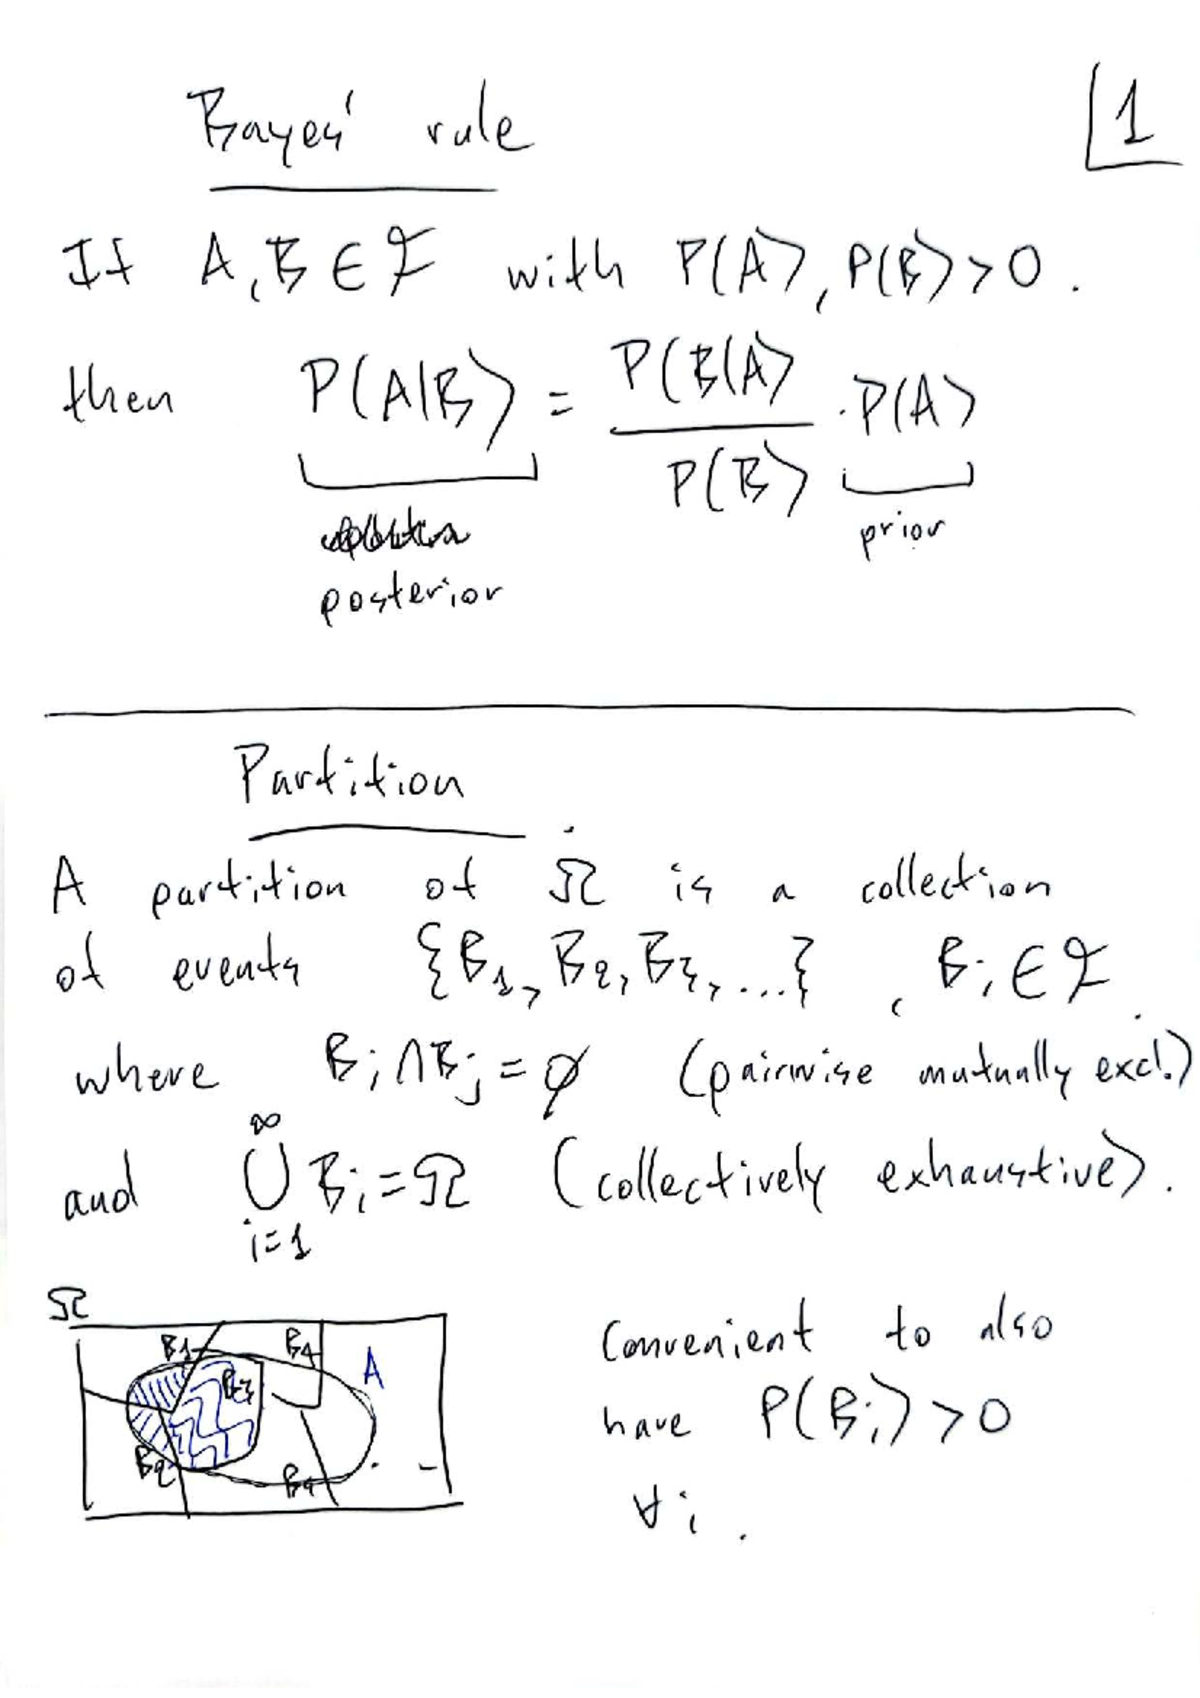 Bayes' rule
1
If A, B ∈ ℱ with P(A), P(B) > 0.
then P(A|B) = P(B|A) / P(B) · P(A)
posterior
prior
Partition
A partition of Ω is a collection
of events {B1, B2, B3, ...}, Bi ∈ ℱ
where Bi ∩ Bj = ∅ (pairwise mutually excl.)
and ∞ ∪ i=1 Bi = Ω (collectively exhaustive).
Ω
B1 B4 A
B3
B2
Convenient to also
have P(Bi) > 0
∀i.